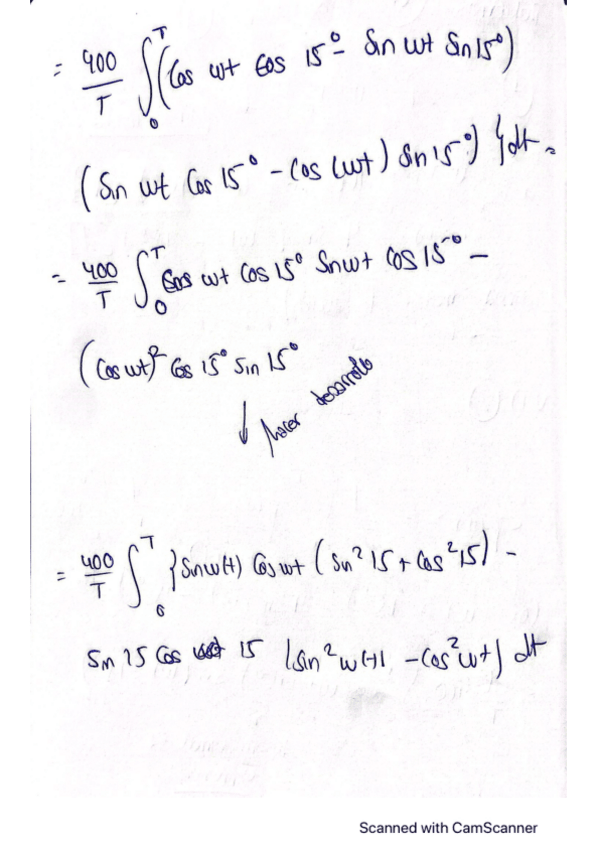 = 400/T ∫₀ᵀ (Cos wt Cos 15° - Sin wt Sin 15°)
(Sin wt Cos 15° - Cos (wt) Sin 15°) } dt =
= 400/T ∫₀ᵀ Cos wt Cos 15° Sin wt Cos 15° -
(Cos wt)² Cos 15° Sin 15°
↓ hacer desarrollo
= 400/T ∫₀ᵀ } Sin w(t) Cos wt (Sin² 15 + Cos² 15) -
Sin 15 Cos 15 (Sin² w(t) - Cos² wt) dt
Scanned with CamScanner